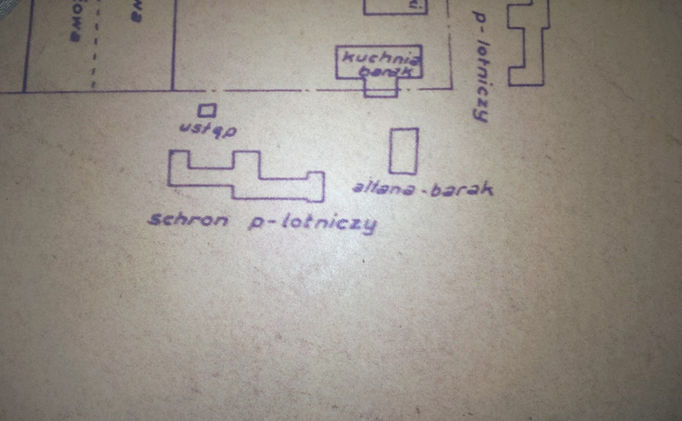 kuchnia
barak
p-lotniczy
ustęp
altana-barak
schron p-lotniczy